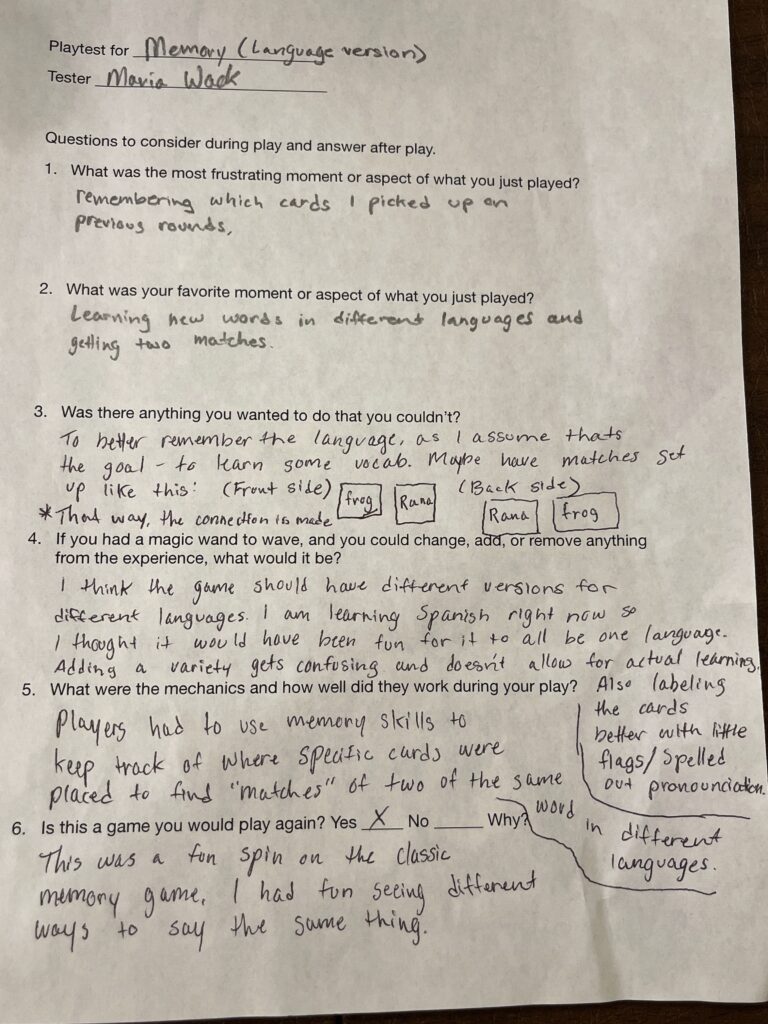 Playtest for Memory (Language version)
Tester Maria Wack
Questions to consider during play and answer after play.
1. What was the most frustrating moment or aspect of what you just played?
remembering which cards I picked up on
previous rounds,
2. What was your favorite moment or aspect of what you just played?
Learning new words in different languages and
getting two matches.
3. Was there anything you wanted to do that you couldn't?
To better remember the language, as I assume thats
the goal - to learn some vocab. Maybe have matches set
up like this: (Front side) frog Rana (Back side) Rana frog
*That way, the connection is made
4. If you had a magic wand to wave, and you could change, add, or remove anything
from the experience, what would it be?
I think the game should have different versions for
different languages. I am learning Spanish right now so
I thought it would have been fun for it to all be one language.
Adding a variety gets confusing and doesn't allow for actual learning.
Also labeling
the cards
better with little
flags/spelled
out pronounciation.
5. What were the mechanics and how well did they work during your play?
Players had to use memory skills to
keep track of where specific cards were
placed to find "matches" of two of the same
word
in different
languages.
6. Is this a game you would play again? Yes X No ____ Why?
This was a fun spin on the classic
memory game. I had fun seeing different
ways to say the same thing.